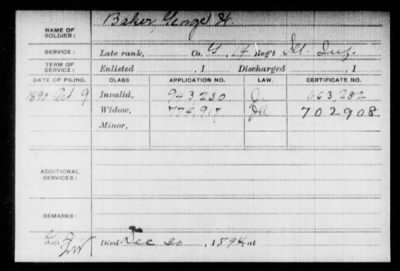 NAME OF SOLDIER: Baker, George H.
SERVICE: Late rank, Co. G, Reg't Ill. Inf.
TERM OF SERVICE: Enlisted , 1 Discharged , 1
DATE OF FILING. CLASS. APPLICATION NO. LAW. CERTIFICATE NO.
Oct 9 Invalid, 943,230 663,232
Widow, 702908
Minor,
ADDITIONAL SERVICES:
REMARKS:
Died Dec 20, 1894, at